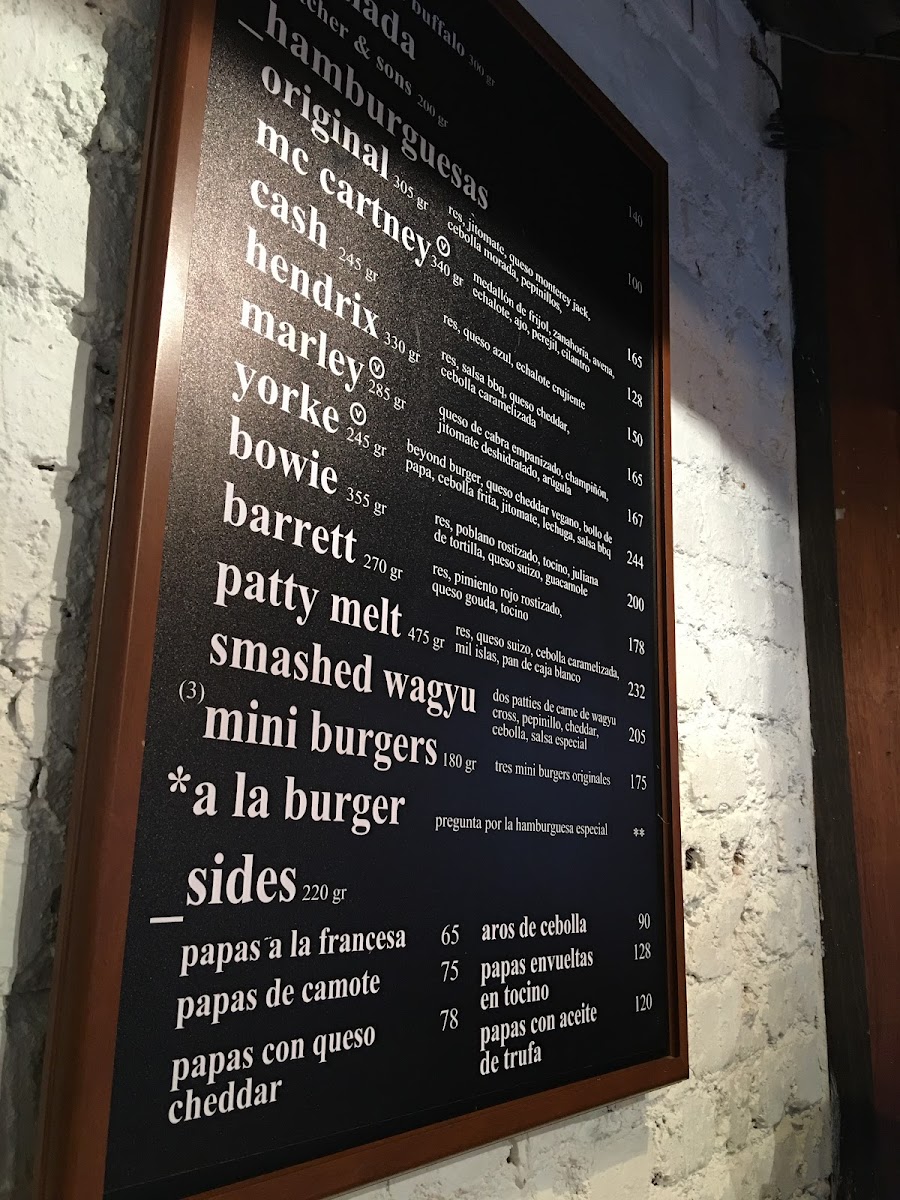 buffalo 300 gr
140
& sons 200 gr
100
_hamburguesas
original 305 gr
res, jitomate, queso monterey jack,
cebolla morada, pepinillos,
165
mc cartney V 340 gr
medallón de frijol, zanahoria, avena,
echalote, ajo, perejil, cilantro
128
cash 245 gr
res, queso azul, echalote crujiente
150
hendrix 330 gr
res, salsa bbq, queso cheddar,
cebolla caramelizada
165
marley V 285 gr
queso de cabra empanizado, champiñón,
jitomate deshidratado, arúgula
167
yorke V 245 gr
beyond burger, queso cheddar vegano, bollo de
papa, cebolla frita, jitomate, lechuga, salsa bbq
244
bowie 355 gr
res, poblano rostizado, tocino, juliana
de tortilla, queso suizo, guacamole
200
barrett 270 gr
res, pimiento rojo rostizado,
queso gouda, tocino
178
patty melt 475 gr
res, queso suizo, cebolla caramelizada,
mil islas, pan de caja blanco
232
smashed wagyu
dos patties de carne de wagyu
cross, pepinillo, cheddar,
cebolla, salsa especial
205
(3) mini burgers 180 gr
tres mini burgers originales
175
*a la burger
pregunta por la hamburguesa especial
**
_sides 220 gr
papas a la francesa 65
papas de camote 75
papas con queso 78
cheddar
aros de cebolla 90
papas envueltas 128
en tocino
papas con aceite 120
de trufa